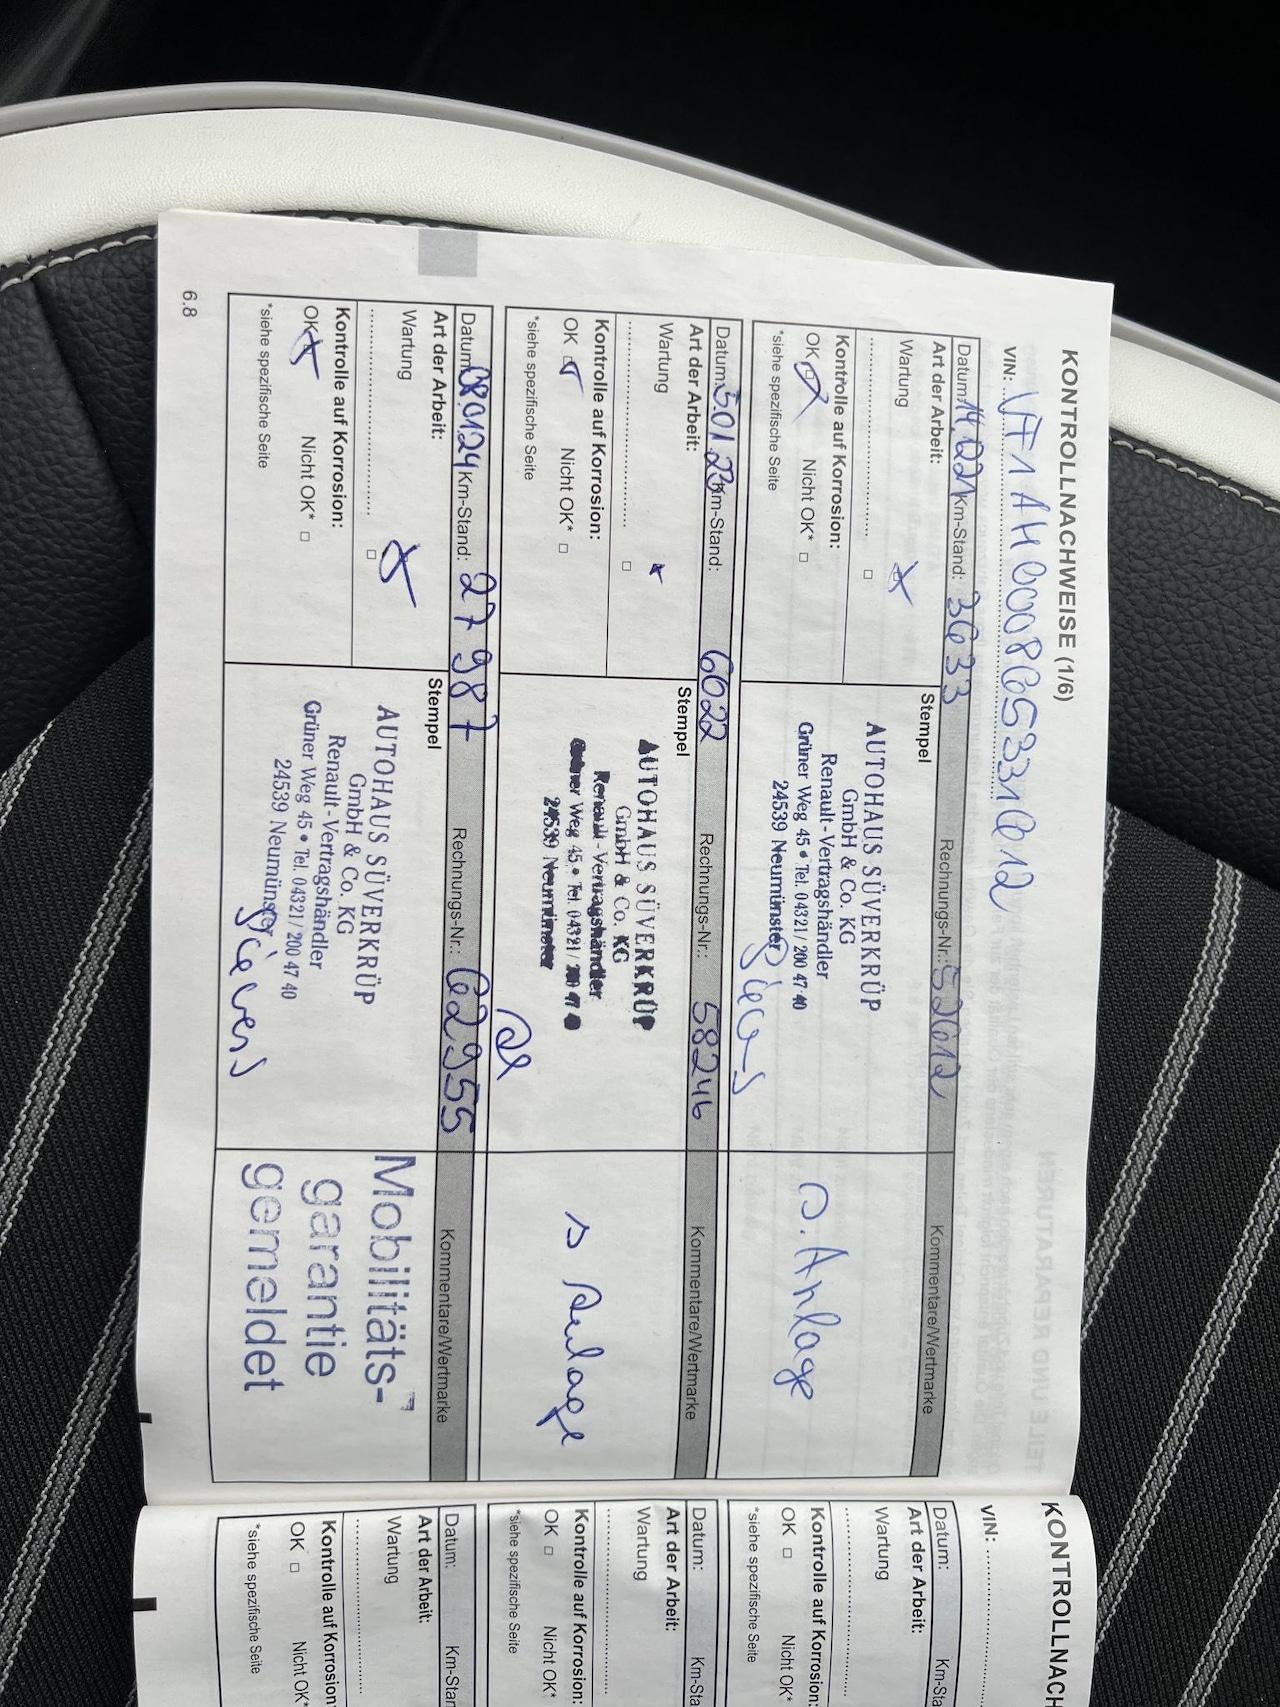 KONTROLLNACHWEISE (1/6)
VIN:
Datum: Km-Stand: 3633 Rechnungs-Nr.: 52612 Kommentare/Wertmarke
Art der Arbeit:
Wartung
Kontrolle auf Korrosion:
OK Nicht OK* □
*siehe spezifische Seite
Stempel
AUTOHAUS SÜVERKRÜP
GmbH & Co. KG
Renault-Vertragshändler
Grüner Weg 45 • Tel. 04321 / 200 47 40
24539 Neumünster
s. Anlage
Datum: 5.01.23 Km-Stand: 6022 Rechnungs-Nr.: 58246 Kommentare/Wertmarke
Art der Arbeit:
Wartung
Kontrolle auf Korrosion:
OK Nicht OK* □
*siehe spezifische Seite
Stempel
AUTOHAUS SÜVERKRÜP
GmbH & Co. KG
Renault-Vertragshändler
Grüner Weg 45 • Tel. 04321 /
24539 Neumünster
s Anlage
Datum: 08.01.24 Km-Stand: 27987 Rechnungs-Nr.: 62955 Kommentare/Wertmarke
Art der Arbeit:
Wartung
Kontrolle auf Korrosion:
OK Nicht OK* □
*siehe spezifische Seite
Stempel
AUTOHAUS SÜVERKRÜP
GmbH & Co. KG
Renault-Vertragshändler
Grüner Weg 45 • Tel. 04321 / 200 47 40
24539 Neumünster
Sievers
Mobilitäts-
garantie
gemeldet
6.8
KONTROLLNACH
VIN:
Datum: Km-Sta
Art der Arbeit:
Wartung
Kontrolle auf Korrosion:
OK □ Nicht OK*
*siehe spezifische Seite
Datum: Km-Sta
Art der Arbeit:
Wartung
Kontrolle auf Korrosion:
OK □ Nicht OK*
*siehe spezifische Seite
Datum: Km-Stan
Art der Arbeit:
Wartung
Kontrolle auf Korrosion:
OK □ Nicht OK*
*siehe spezifische Seite